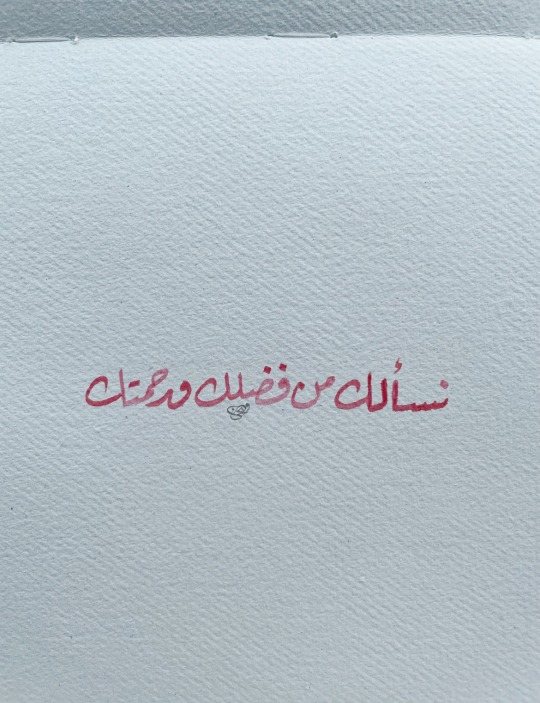 نسألك من فضلك ورحمتك